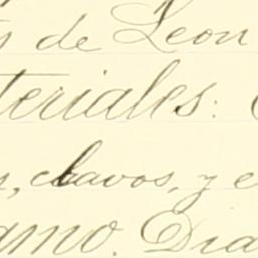 de Leon
teriales:
clavos, y e
amo. Dia